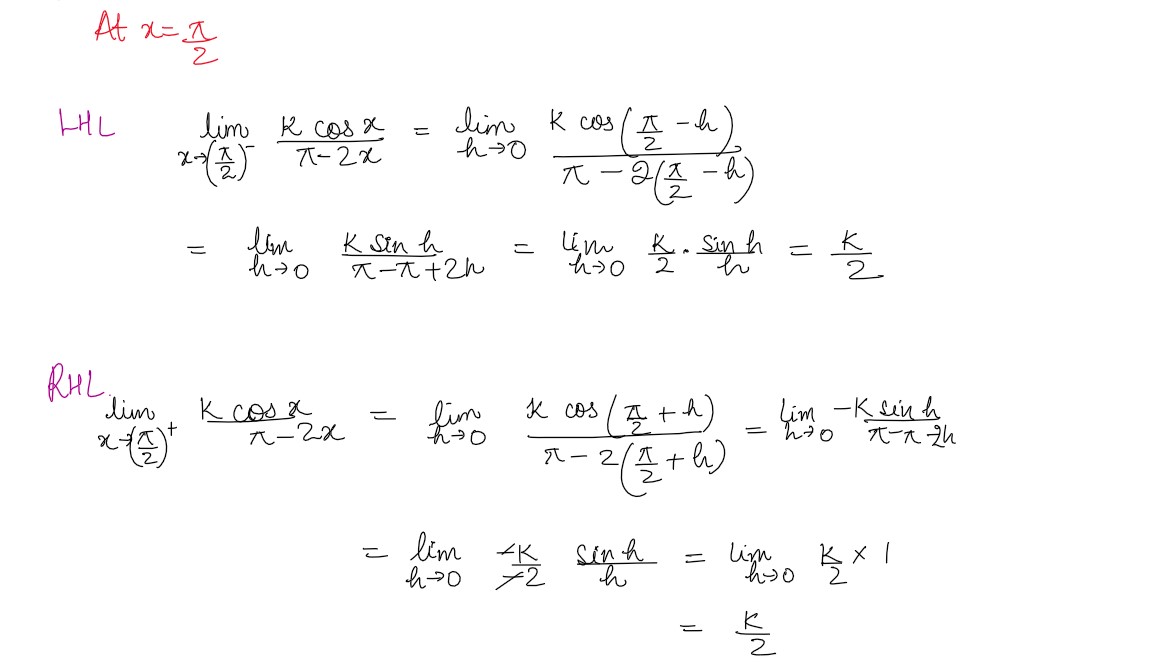 At x = π/2
LHL lim x→(π/2)⁻ K cos x / π-2x = lim h→0 K cos(π/2 - h) / π - 2(π/2 - h)
= lim h→0 K sin h / π-π+2h = lim h→0 K/2 · sin h / h = K/2
RHL.
lim x→(π/2)⁺ K cos x / π-2x = lim h→0 K cos(π/2 + h) / π - 2(π/2 + h) = lim h→0 -K sin h / π-π-2h
= lim h→0 -K/-2 sin h / h = lim h→0 K/2 × 1
= K/2